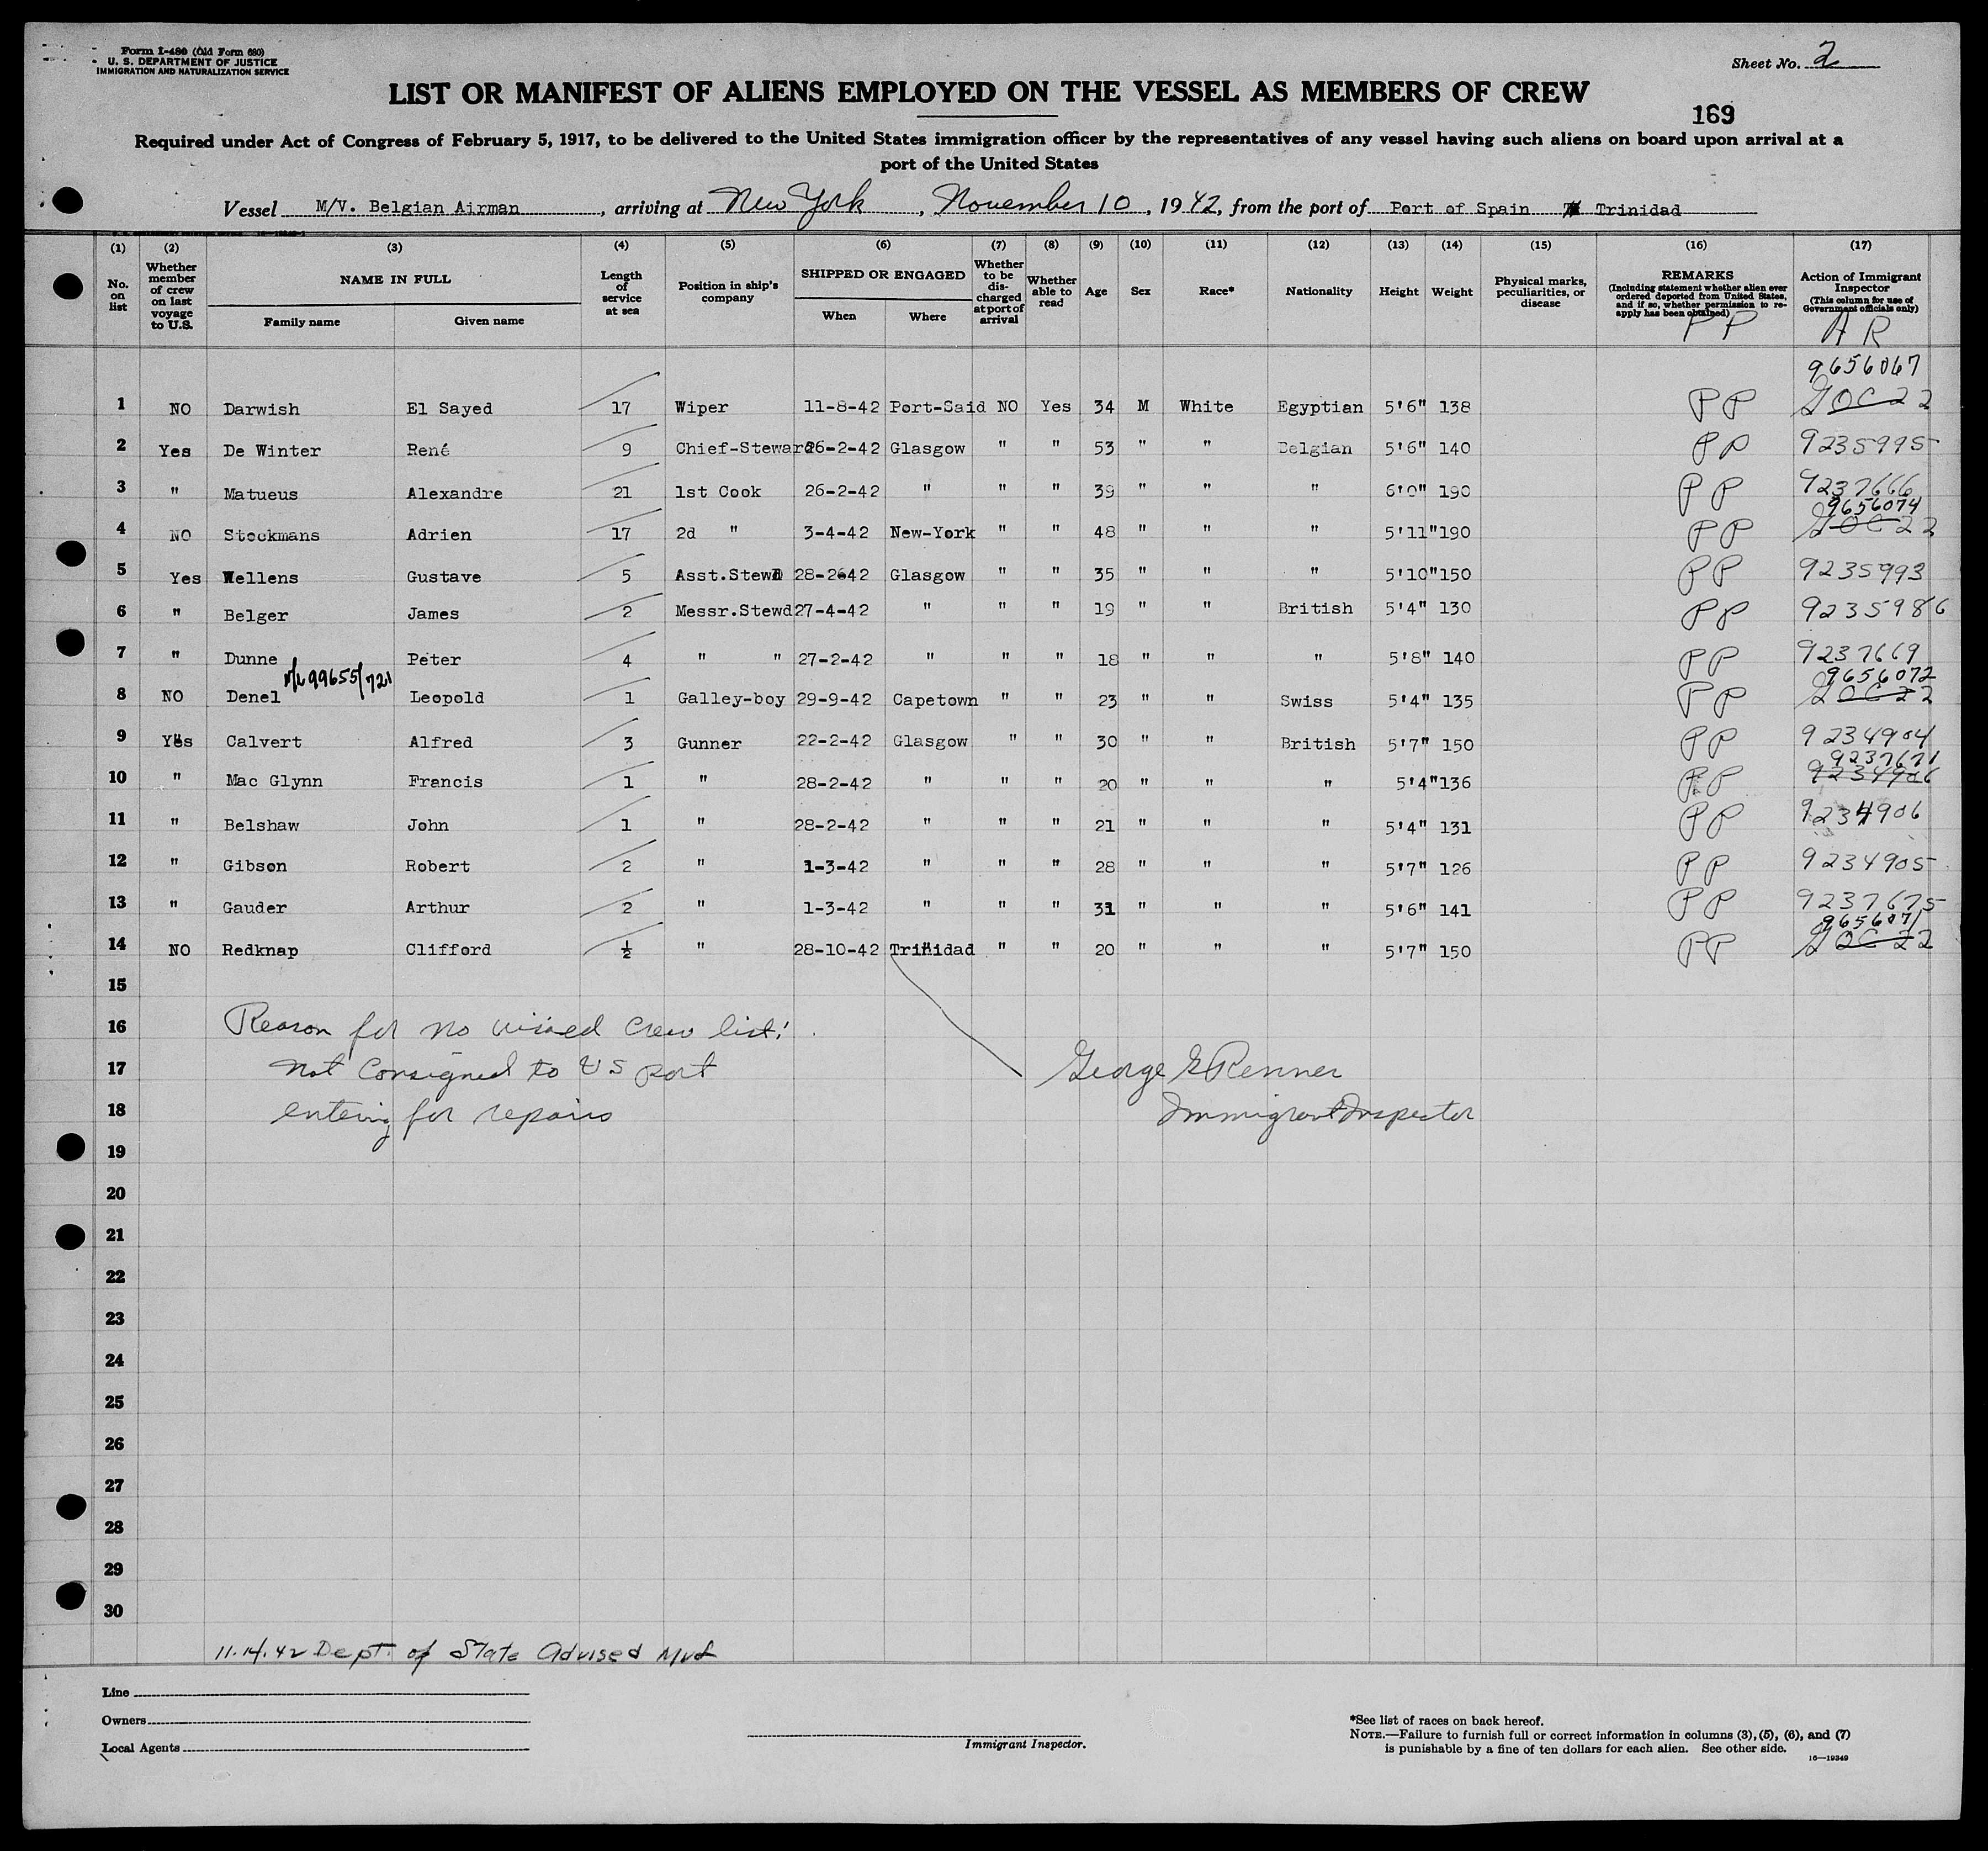 Form I-480 (Old Form 680)
U. S. DEPARTMENT OF JUSTICE
IMMIGRATION AND NATURALIZATION SERVICE
Sheet No. 2
LIST OR MANIFEST OF ALIENS EMPLOYED ON THE VESSEL AS MEMBERS OF CREW
169
Required under Act of Congress of February 5, 1917, to be delivered to the United States immigration officer by the representatives of any vessel having such aliens on board upon arrival at a
port of the United States
Vessel M/V. Belgian Airman, arriving at New York, November 10, 1942, from the port of Port of Spain Trinidad
(1) (2) (3) (4) (5) (6) (7) (8) (9) (10) (11) (12) (13) (14) (15) (16) (17)
No. on list
Whether member of crew on last voyage to U.S.
NAME IN FULL
Family name
Given name
Length of service at sea
Position in ship's company
SHIPPED OR ENGAGED
When
Where
Whether to be discharged at port of arrival
Whether able to read
Age
Sex
Race*
Nationality
Height
Weight
Physical marks, peculiarities, or disease
REMARKS
(Including statement whether alien ever ordered deported from United States, and if so, whether permission to re-apply has been obtained)
Action of Immigrant Inspector
(This column for use of Government officials only)
PP AR
9656067
1 NO Darwish El Sayed 17 Wiper 11-8-42 Port-Said NO Yes 34 M White Egyptian 5'6" 138 PP
2 Yes De Winter René 9 Chief-Steward 26-2-42 Glasgow " " 53 " " Belgian 5'6" 140 PP 9235995
3 " Matueus Alexandre 21 1st Cook 26-2-42 " " " 39 " " " 6'0" 190 PP 9237666
9656074
4 NO Stockmans Adrien 17 2d " 3-4-42 New-York " " 48 " " " 5'11" 190 PP
5 Yes Wellens Gustave 5 Asst.Stewd 28-2-42 Glasgow " " 35 " " " 5'10" 150 PP 9235993
6 " Belger James 2 Messr.Stewd 27-4-42 " " " 19 " " British 5'4" 130 PP 9235986
7 " Dunne Peter 4 " " 27-2-42 " " " 18 " " " 5'8" 140 PP 9237669
99655/721
9656072
8 NO Denel Leopold 1 Galley-boy 29-9-42 Capetown " " 23 " " Swiss 5'4" 135 PP
9 Yes Calvert Alfred 3 Gunner 22-2-42 Glasgow " " 30 " " British 5'7" 150 PP 9234904
9237671
10 " Mac Glynn Francis 1 " 28-2-42 " " " 20 " " " 5'4" 136 PP 9234906
11 " Belshaw John 1 " 28-2-42 " " " 21 " " " 5'4" 131 PP 9234906
12 " Gibson Robert 2 " 1-3-42 " " " 28 " " " 5'7" 126 PP 9234905
13 " Gauder Arthur 2 " 1-3-42 " " " 31 " " " 5'6" 141 PP 9237675
9656071
14 NO Redknap Clifford ½ " 28-10-42 Trinidad " " 20 " " " 5'7" 150 PP
15
16 Reason for no visaed crew list:
17 Not consigned to US port George E Renner
18 entering for repairs Immigrant Inspector
19
20
21
22
23
24
25
26
27
28
29
30
11.14.42 Dept. of State Advised
Line
Owners
Local Agents
Immigrant Inspector.
*See list of races on back hereof.
NOTE.—Failure to furnish full or correct information in columns (3), (5), (6), and (7)
is punishable by a fine of ten dollars for each alien. See other side.
16—19349